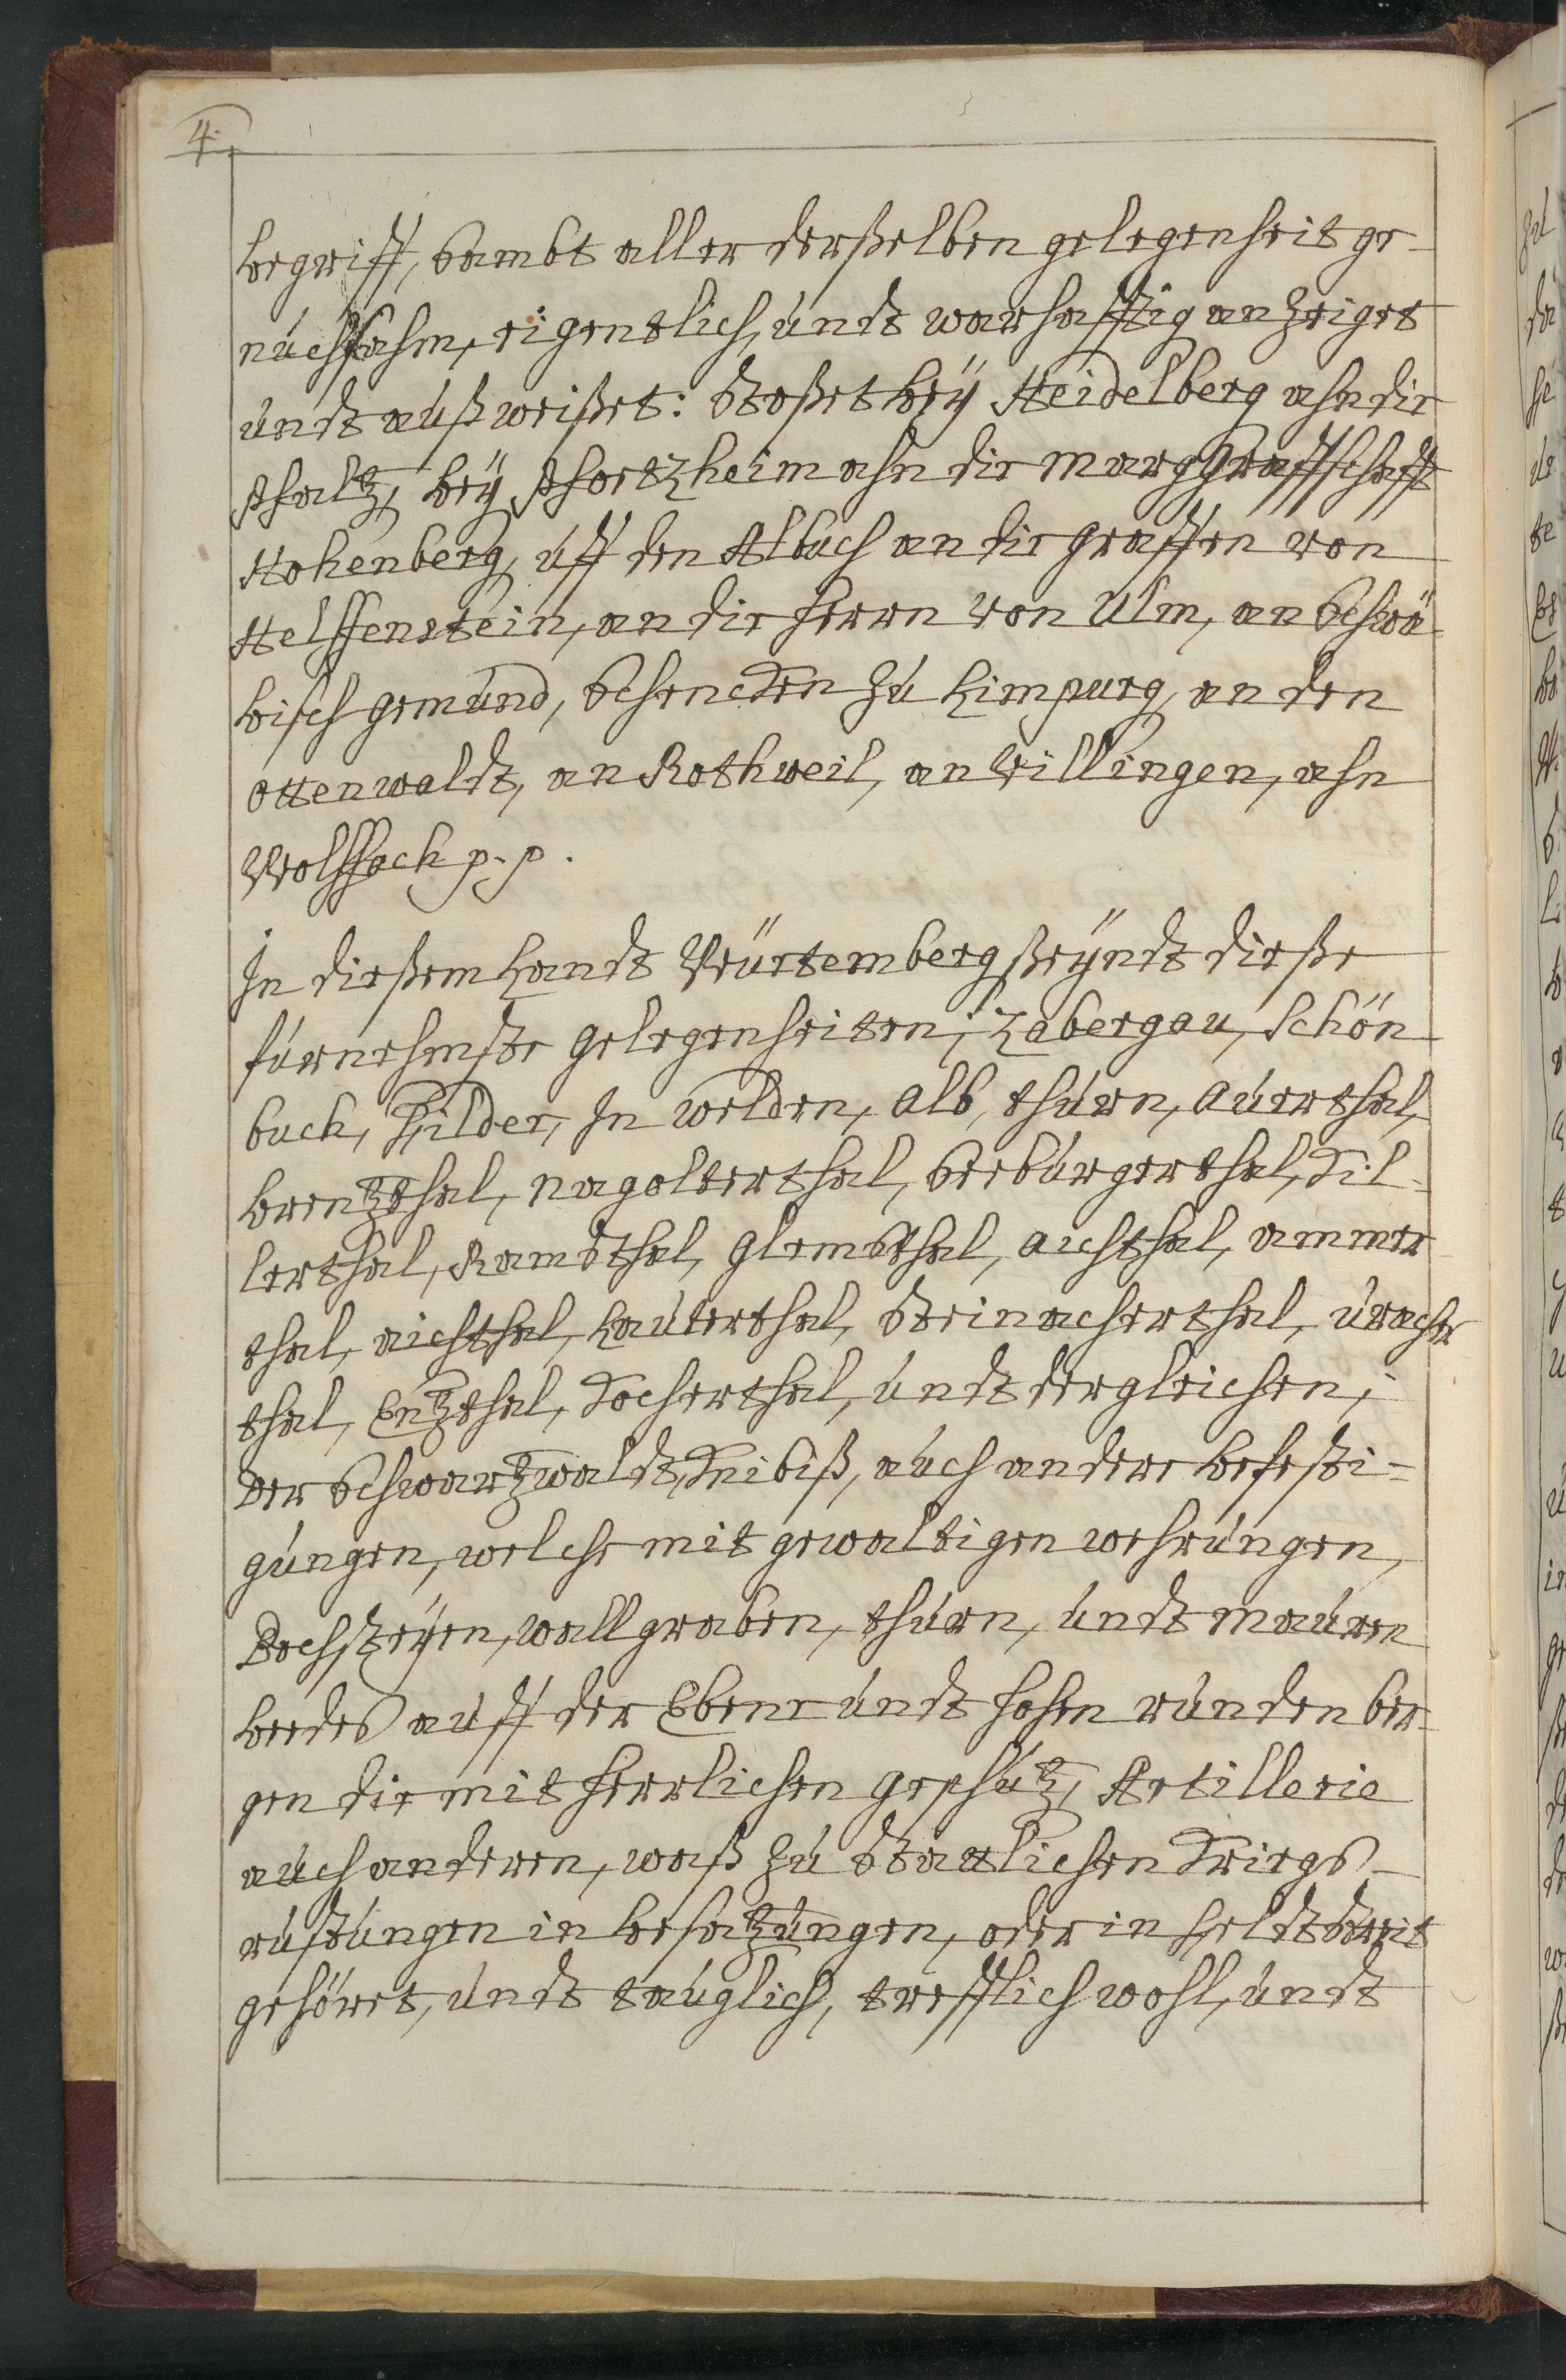 4.
begriff, sambt aller derßelben gelegenheit ge-
nuchsahm, eigentlich, undt warhafftig anzeiget
undt außweißet: stoßet beÿ Heidelberg ahn die
Pfaltz, beÿ Pfortzheim ahn die Marggraffschafft
Hohenberg, uff den Albuch an die Graffen von
Helffenstein, an die Herrn von Ulm, an Schwä-
bisch Gemünd, Schencken zu Limpurg, an den
Ottenwaldt, an Rothweil, an Villingen, ahn
Wolffach p. p.
In dießem Landt Würtemberg ßeÿndt dieße
fürnehmste gelegenheiten; Zabergau, Schön
buch, Filder, In welden, Alb, thurn, Aurrthal,
brentzthal, nagolterthal, Seeburgerthal, Kil-
lerthal, Ramsthal, Glemsthal, Aichthal, ammer
thal, aichthal, Lauterthal, Steinacherthal, uracher
thal, Entzthal, Kocherthal, undt dergleichen;
der Schwartzwaldt, Knibiß, auch andere befesti-
gungen, welche mit gewaltigen wehrungen,
Bechsteÿen, wallgraben, thurn, undt mauren
beedes auff der Ebene undt hohen runden ber-
gen die mit herrlichen geschütz, Artillerie
auch anderen, waß zu stattlichen Kriegs-
rüstungen in besatzungen, oder in Feldtstreit
gehöret, undt tauglich, trefflich wohl, undt